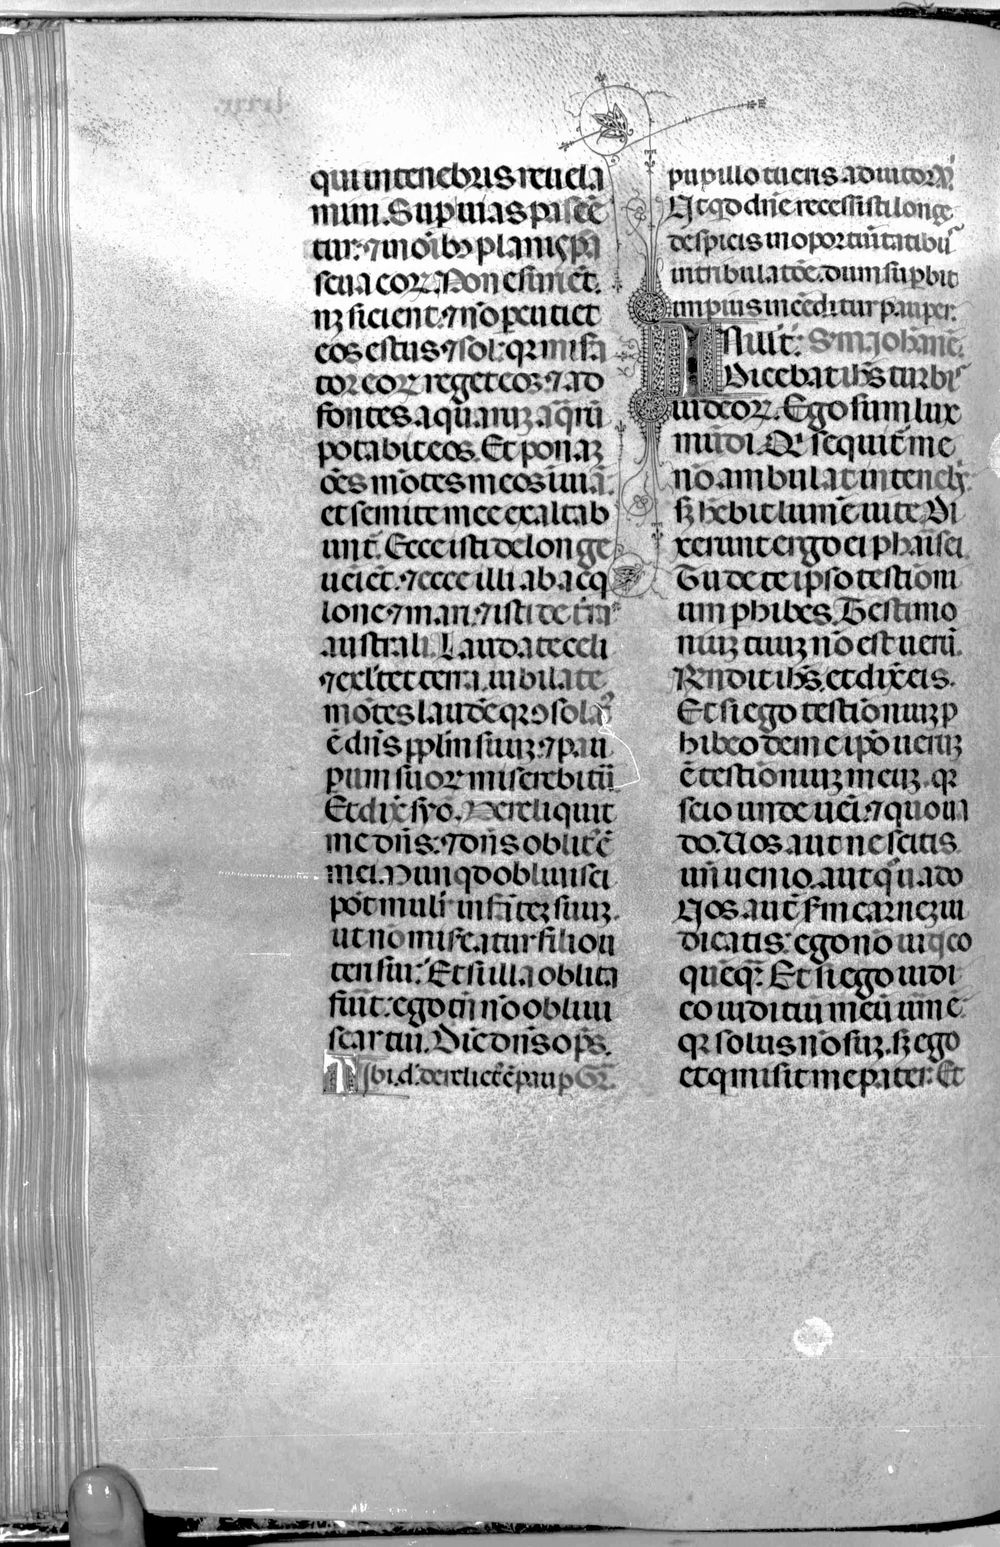 qui in tenebris reuela
mini. Sup uias pascēt̄
tur: ⁊ in oīb; planis pa
scua eoꝝ. Non esuriēt.
nꝫ sicient. ⁊ nō pcutiet
eos estus ⁊ sol: qꝛ misa
tor eoꝝ reget eos. ⁊ ad
fontes aquaꝝ aq̄rū
potabit eos. Et ponaꝫ
oēs mōtes meos in uiā.
et semite mee exaltab
unt̄. Ecce isti de longe
ueīet. ⁊ ecce illi ab aq̄
lone ⁊ mari. ⁊ isti de tr̄a
australi. Laudate celi
⁊ exl̄tet terra. iubilate
mōtes laudē qꝛ ↄsolat9
ē dn̄s pplm suuꝫ. ⁊ pau
perum suoꝝ miserebitur̄
Et dix̄ syō. Dereliquit
me dn̄s: ⁊ dn̄s oblit9 ē
mei. Nunqd obliuisci
pōt mulī infāteꝫ suuꝫ.
ut nō miseatur filio u
teri sui: Et si illa oblita
fūit: ego tn̄ nō obliui
scar tui. Dic̄ dn̄s op̄s.
Tibi. d. derelict9 ē paup Gr̄.
pupillo tu eris adiutor. ℣.
Ut qd dn̄e recessisti longe
despicis in oportūitatibus
in tribulatōe. dum supbit
impius incēditur pauper.
IN illt̄. Sm Johanē.
Dicebat ih̄s turbis
iudeoꝝ. Ego sum lux
mūdi. Qi sequit̄ me
nō ambulat in tenebr̄.
sꝫ hēbit lumē uite. Di
xerunt ergo ei pharisei.
Tu de te ipso testiōni
um phibes. Testimo
niuꝫ tuuꝫ nō est ueꝝ.
Rn̄dit ih̄s. et dix̄ eis.
Et si ego testiōniuꝫ p
hibeo de me ipō ueruꝫ
ē testiōniuꝫ meuꝫ. qꝛ
scio unde ueī. ⁊ quo ua
do. Uos aut nescitis
un̄ uenio. aut quo uado
Uos aut̄ sm carneꝫ iu
dicatis: ego nō iudico
quēqꝫ. Et si ego iudi
co iuditiū meū uerū ē.
qꝛ solus nō suꝫ. sꝫ ego
et q misit me pater. Et